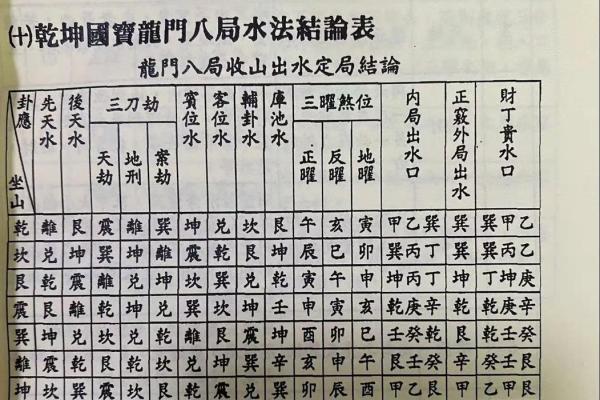 ㈩乾坤國寶龍門八局水法結論表
龍門八局收山出水定局結論
卦應 坐山 先天水 後天水 三刀劫 賓位水 客位水 輔卦水 庫池水 三曜煞位 内局出水口 正竅外局出水 財丁貴水口
天劫 地刑 案劫 正曜 反曜 地曜
乾 離 艮 震 離 巽 坤 兌 坎 艮 午 亥 寅 甲乙巽 巽 巽甲乙
坎 兌 坤 巽 坤 離 震 艮 乾 坤 辰 巳 卯 巽丙丁 巽 巽丙乙
艮 乾 震 離 兌 坤 坎 巽 兌 乾 寅 午 申 坤丙丁 坤 丁坤庚
震 艮 離 乾 坤 兌 巽 坎 坤 壬 申 寅 亥 乾庚辛 乾 乾庚辛
巽 坤 兌 坎 兌 乾 離 艮 震 坤 酉 卯 巳 壬癸乾 艮 乾壬癸
離 震 乾 艮 乾 坎 兌 坤 巽 辛 亥 申 午 艮壬癸 辛 癸壬艮
坤 坎 巽 震 坎 艮 乾 震 兌 巽 卯 辰 酉 甲乙艮 甲 乙甲艮